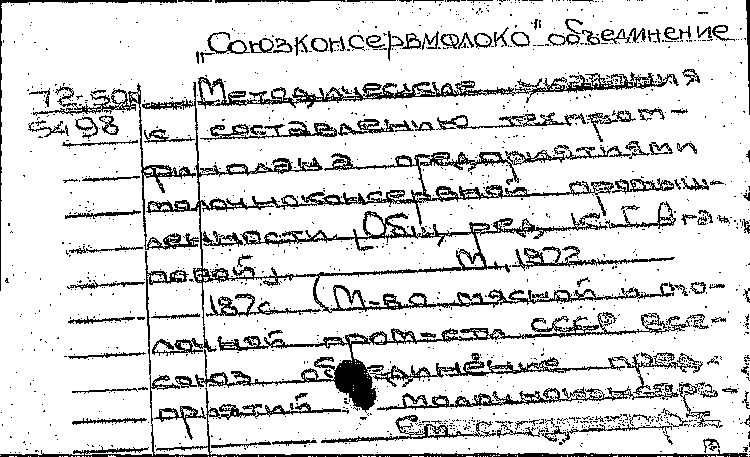 „Союзконсервмолоко" объединение
72-50
5498
Методические указания
к составлению техпром-
финплана предприятиями
молочноконсервной промыш-
ленности [Общ. ред. К. Г. Ага-
повой].
М., 1972
187с. (М-во мясной и мо-
лочной пром-сти СССР Все-
союз. объединение пред-
приятий молочноконсерв-
См. след.